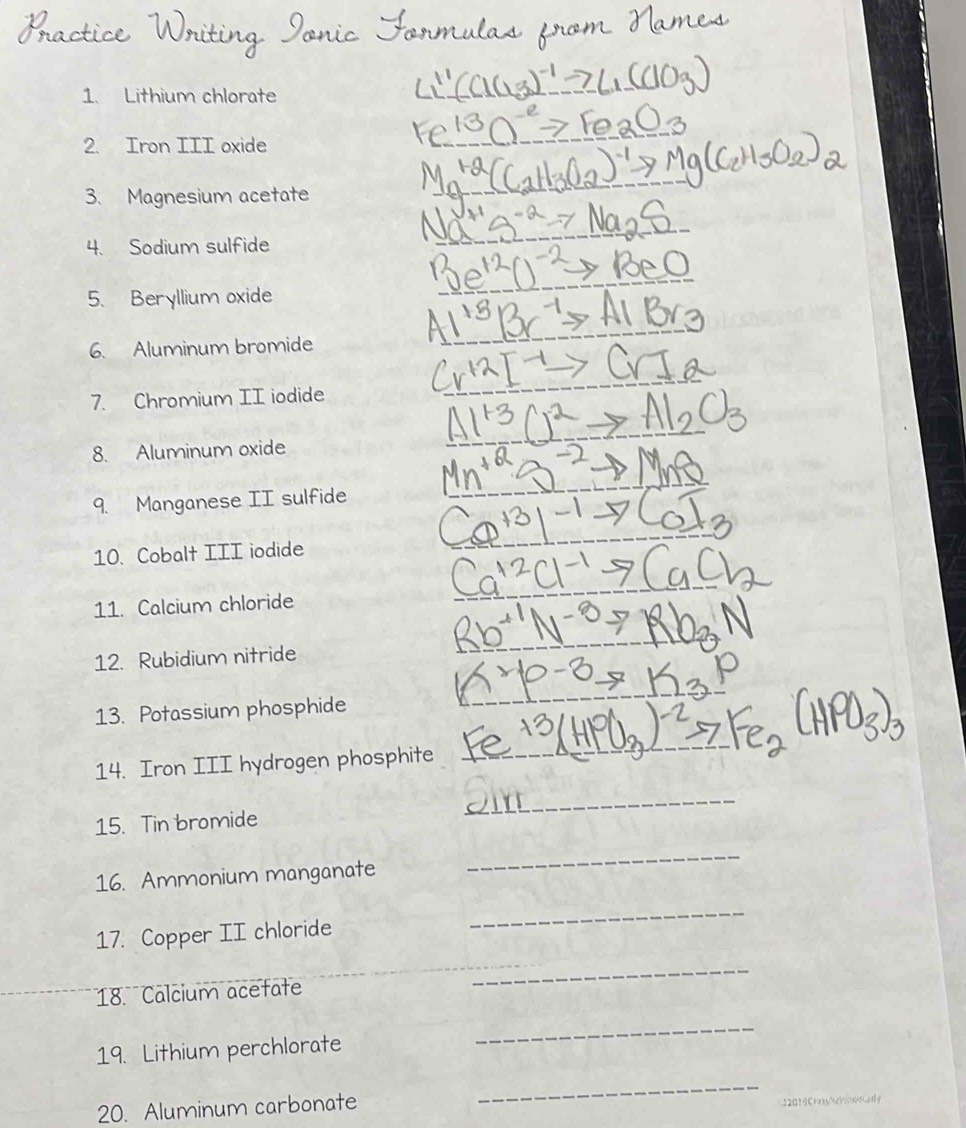 Practice Writing Ionic Formulas from Names
1. Lithium chlorate Li⁺¹(ClO₃)⁻¹ → Li(ClO₃)
2. Iron III oxide Fe⁺³O⁻² → Fe₂O₃
3. Magnesium acetate Mg⁺²(C₂H₃O₂)⁻¹ → Mg(C₂H₃O₂)₂
4. Sodium sulfide Na⁺¹S⁻² → Na₂S
5. Beryllium oxide Be⁺²O⁻² → BeO
6. Aluminum bromide Al⁺³Br⁻¹ → AlBr₃
7. Chromium II iodide Cr⁺²I⁻¹ → CrI₂
8. Aluminum oxide Al⁺³O² → Al₂O₃
9. Manganese II sulfide Mn⁺²S⁻² → MnS
10. Cobalt III iodide Co⁺³I⁻¹ → CoI₃
11. Calcium chloride Ca⁺²Cl⁻¹ → CaCl₂
12. Rubidium nitride Rb⁺¹N⁻³ → Rb₃N
13. Potassium phosphide K⁺¹P⁻³ → K₃P
14. Iron III hydrogen phosphite Fe⁺³(HPO₃)⁻² → Fe₂(HPO₃)₃
15. Tin bromide
16. Ammonium manganate
17. Copper II chloride
18. Calcium acetate
19. Lithium perchlorate
20. Aluminum carbonate